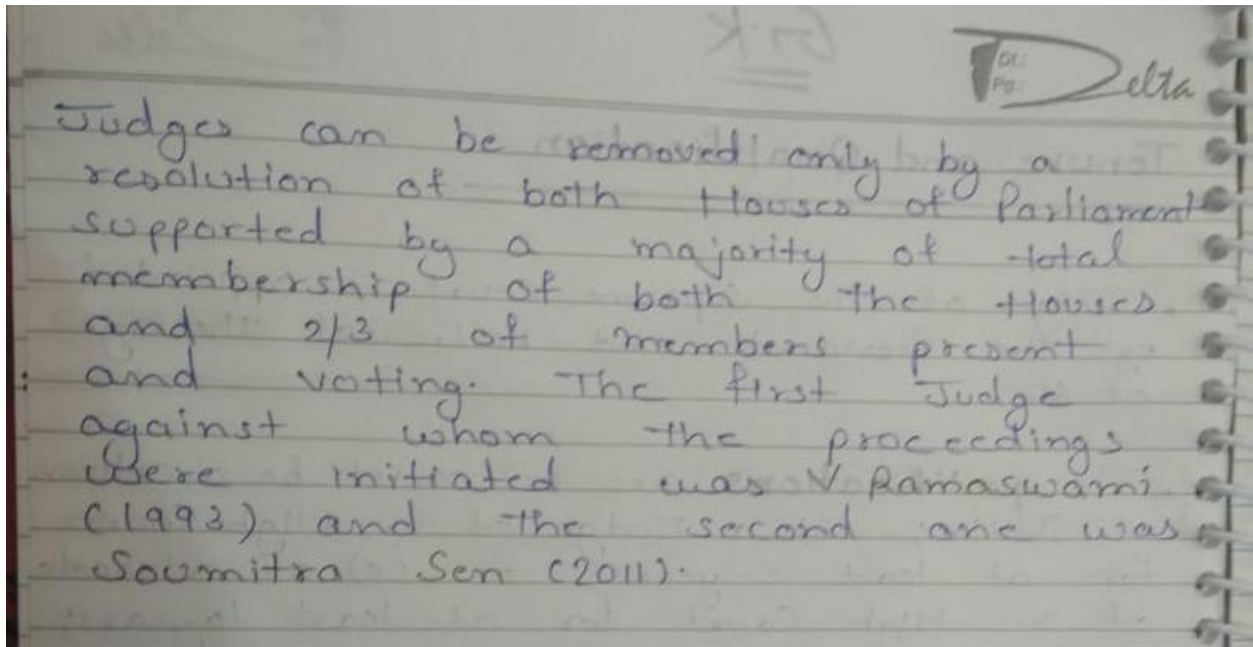 Delta
Dt.:
Pg.:
Judges can be removed only by a
resolution of both Houses of Parliament
supported by a majority of total
membership of both the Houses
and 2/3 of members present
and voting. The first Judge
against whom the proceedings
were initiated was V Ramaswami
(1993) and the second one was
Soumitra Sen (2011).